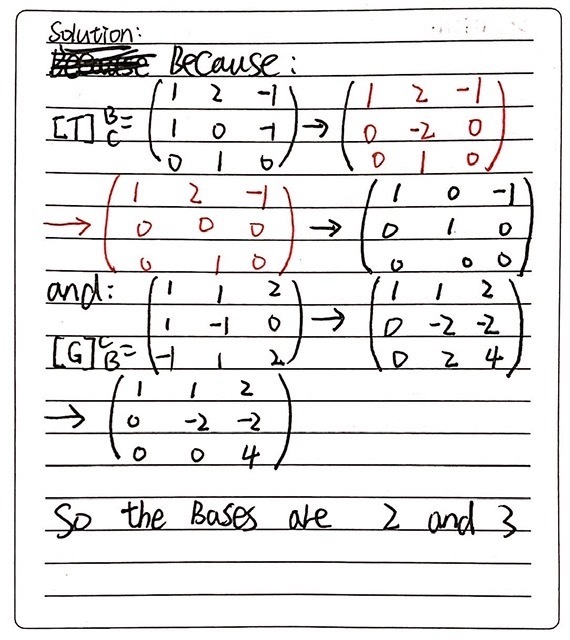 Solution:
Because Because:
[T] B C = ( 1 2 -1 1 0 -1 0 1 0 ) → ( 1 2 -1 0 -2 0 0 1 0 )
→ ( 1 2 -1 0 0 0 0 1 0 ) → ( 1 0 -1 0 1 0 0 0 0 )
and:
[G] C B = ( 1 1 2 1 -1 0 -1 1 2 ) → ( 1 1 2 0 -2 -2 0 2 4 )
→ ( 1 1 2 0 -2 -2 0 0 4 )
So the Bases are 2 and 3